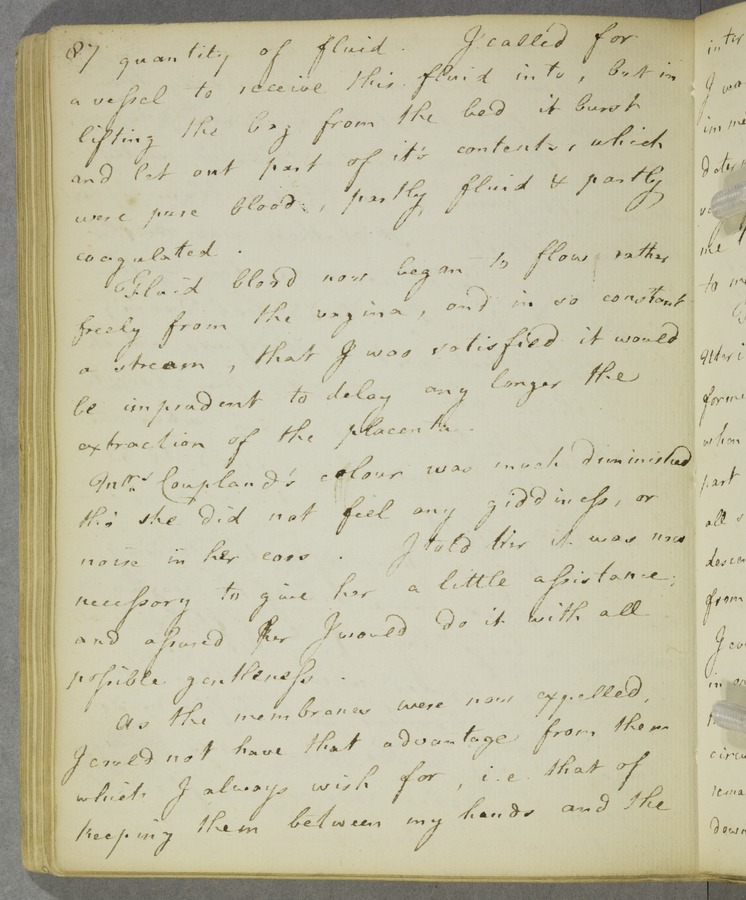 87 quantity of fluid. I called for
a vessel to receive this fluid into, but in
lifting the bag from the bed it burst
and let out part of it's contents, which
were pure blood, partly fluid & partly
coagulated.
Fluid blood now began to flow rather
freely from the vagina, and in so constant
a stream, that I was satisfied it would
be imprudent to delay any longer the
extraction of the placenta.
Mrs Coupland's colour was much diminished
tho' she did not feel any giddiness, or
noise in her ears. I told her it was now
necessary to give her a little assistance;
and assured her I would do it with all
possible gentleness.
As the membranes were now expelled,
I could not have that advantage from them
which I always wish for, i.e. that of
keeping them between my hands and the